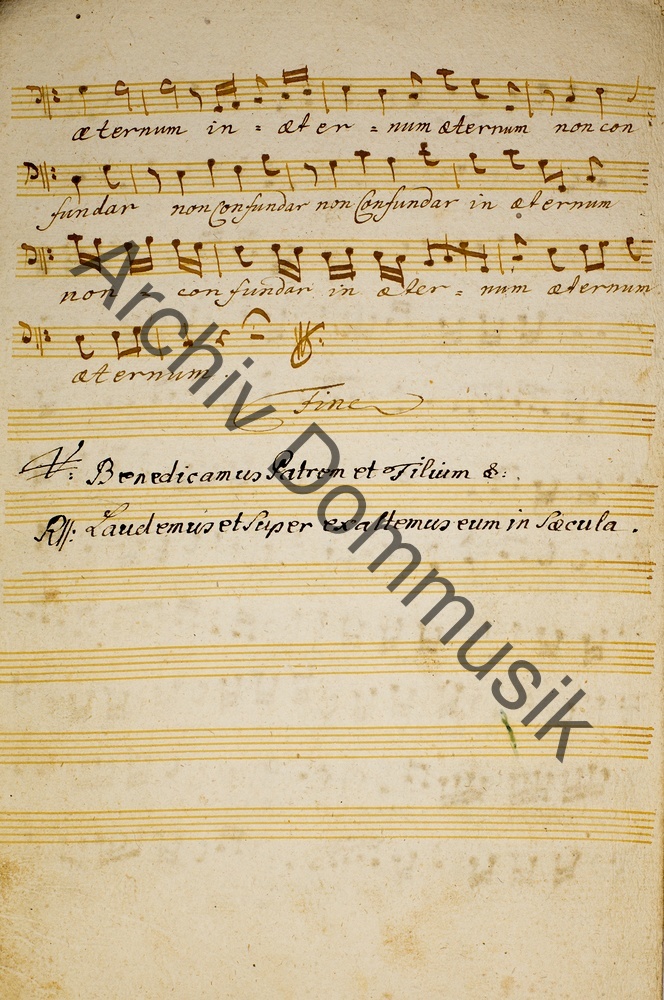 æternum in = æter = num æternum non con
fundar non Confundar non Confundar in æternum
non = confundar in æter = num æternum
æternum.
Fine
℣: Benedicamus Patrem et Filium &:
R//: Laudemus et super exaltemus eum in sæcula.
Archiv Dommusik